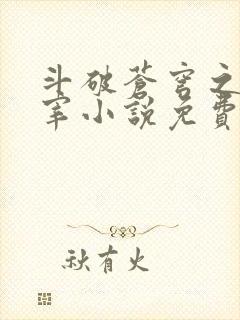 斗破蒼穹之
宰小說免費
秋有火